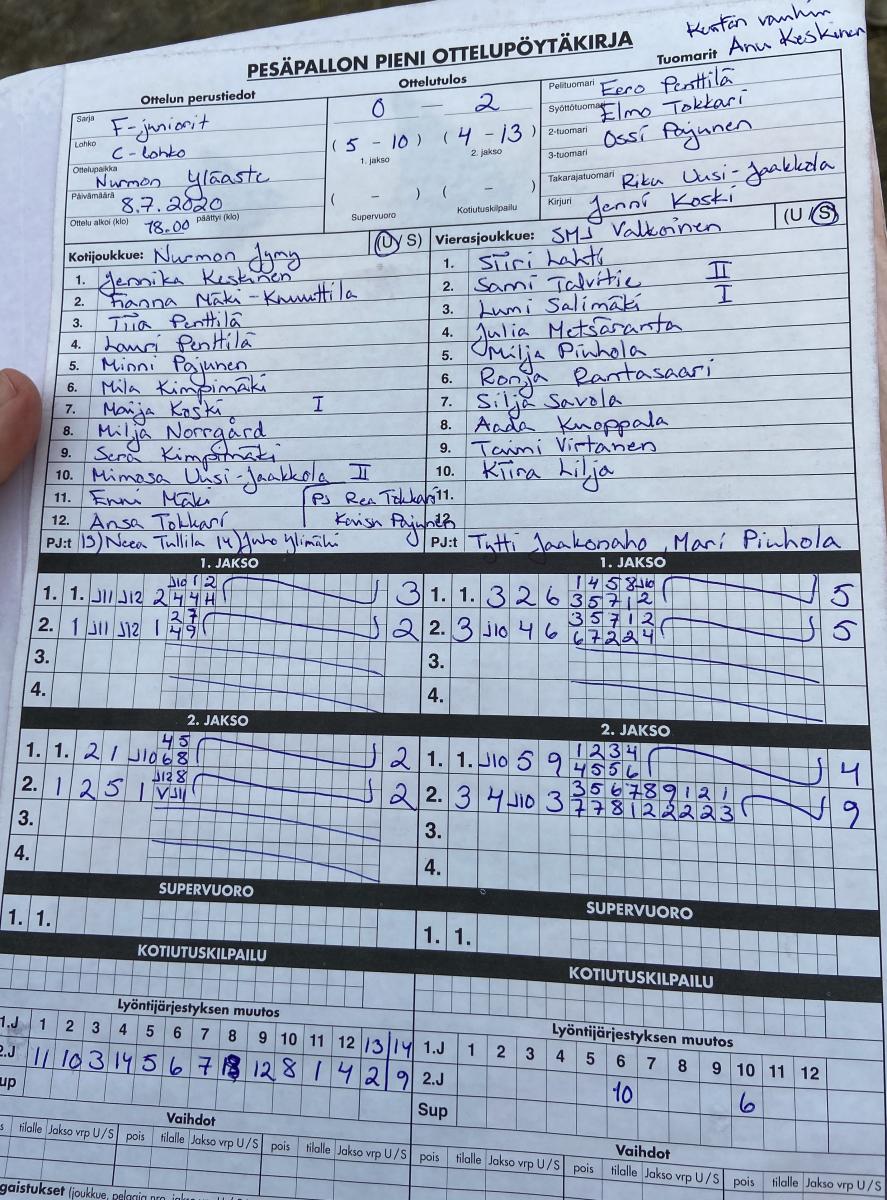 Kentän vanhin
Anu Keskinen
PESÄPALLON PIENI OTTELUPÖYTÄKIRJA
Ottelun perustiedot
Sarja F-juniorit
Lohko C-lohko
Ottelupaikka Nurmon Yläaste
Päivämäärä 8.7.2020
Ottelu alkoi (klo) 18.00 päättyi (klo)
Ottelutulos
0 – 2
(5 - 10) (4 - 13)
1. jakso 2. jakso
( - ) ( - )
Supervuoro Kotiutuskilpailu
Tuomarit
Pelituomari Eero Penttilä
Syöttötuomari Elmo Tokkari
2-tuomari Ossi Pajunen
3-tuomari
Takarajatuomari Riku Uusi-Jaakkola
Kirjuri Jenni Koski
Kotijoukkue: Nurmon Jymy (U/S)
1. Jennika Keskinen
2. Fianna Mäki-Knuuttila
3. Tiia Penttilä
4. Lauri Penttilä
5. Minni Pajunen
6. Mila Kimpimäki
7. Maija Koski I
8. Milja Norrgård
9. Sera Kimpimäki
10. Mimosa Uusi-Jaakkola II
11. Enni Mäki
12. Ansa Tokkari
Ps Rea Tokkari
Pajunen
PJ:t 13) Neea Tullila 14) Juho Ylimäki
Vierasjoukkue: SMJ Valkoinen (U/S)
1. Siiri Lahti
2. Sanni Talvitie II
3. Lumi Salimäki I
4. Julia Metsäranta
5. Milja Piuhola
6. Ronja Rantasaari
7. Silja Savola
8. Aada Knoppala
9. Taimi Virtanen
10. Kiira Lilja
11.
12.
PJ:t Tytti Jaakonaho, Mari Piuhola
1. JAKSO
1. 1. J11 J12 2 J10 1 2 3
2 4 4 4
2. 1 J11 J12 1 2 7 2
4 9
3.
4.
1. JAKSO
1. 1. 3 2 6 1 4 5 8 J10 5
3 5 7 1 2
2. 3 J10 4 6 3 5 7 1 2 5
6 7 2 2 4
3.
4.
2. JAKSO
1. 1. 2 1 J10 4 5 2
6 8
2. 1 2 5 1 J12 8 2
V J11
3.
4.
2. JAKSO
1. 1. J10 5 9 1 2 3 4 4
4 5 5 6
2. 3 4 J10 3 3 5 6 7 8 9 1 2 1 9
7 7 8 1 2 2 2 2 3
3.
4.
SUPERVUORO
1. 1.
SUPERVUORO
1. 1.
KOTIUTUSKILPAILU
KOTIUTUSKILPAILU
Lyöntijärjestyksen muutos
1.J 1 2 3 4 5 6 7 8 9 10 11 12 13 14
2.J 11 10 3 14 5 6 7 13 12 8 1 4 2 9
up
Lyöntijärjestyksen muutos
1.J 1 2 3 4 5 6 7 8 9 10 11 12
2.J 10 6
Sup
Vaihdot
s tilalle Jakso vrp U/S pois tilalle Jakso vrp U/S pois tilalle Jakso vrp U/S
Vaihdot
pois tilalle Jakso vrp U/S pois tilalle Jakso vrp U/S pois tilalle Jakso vrp U/S